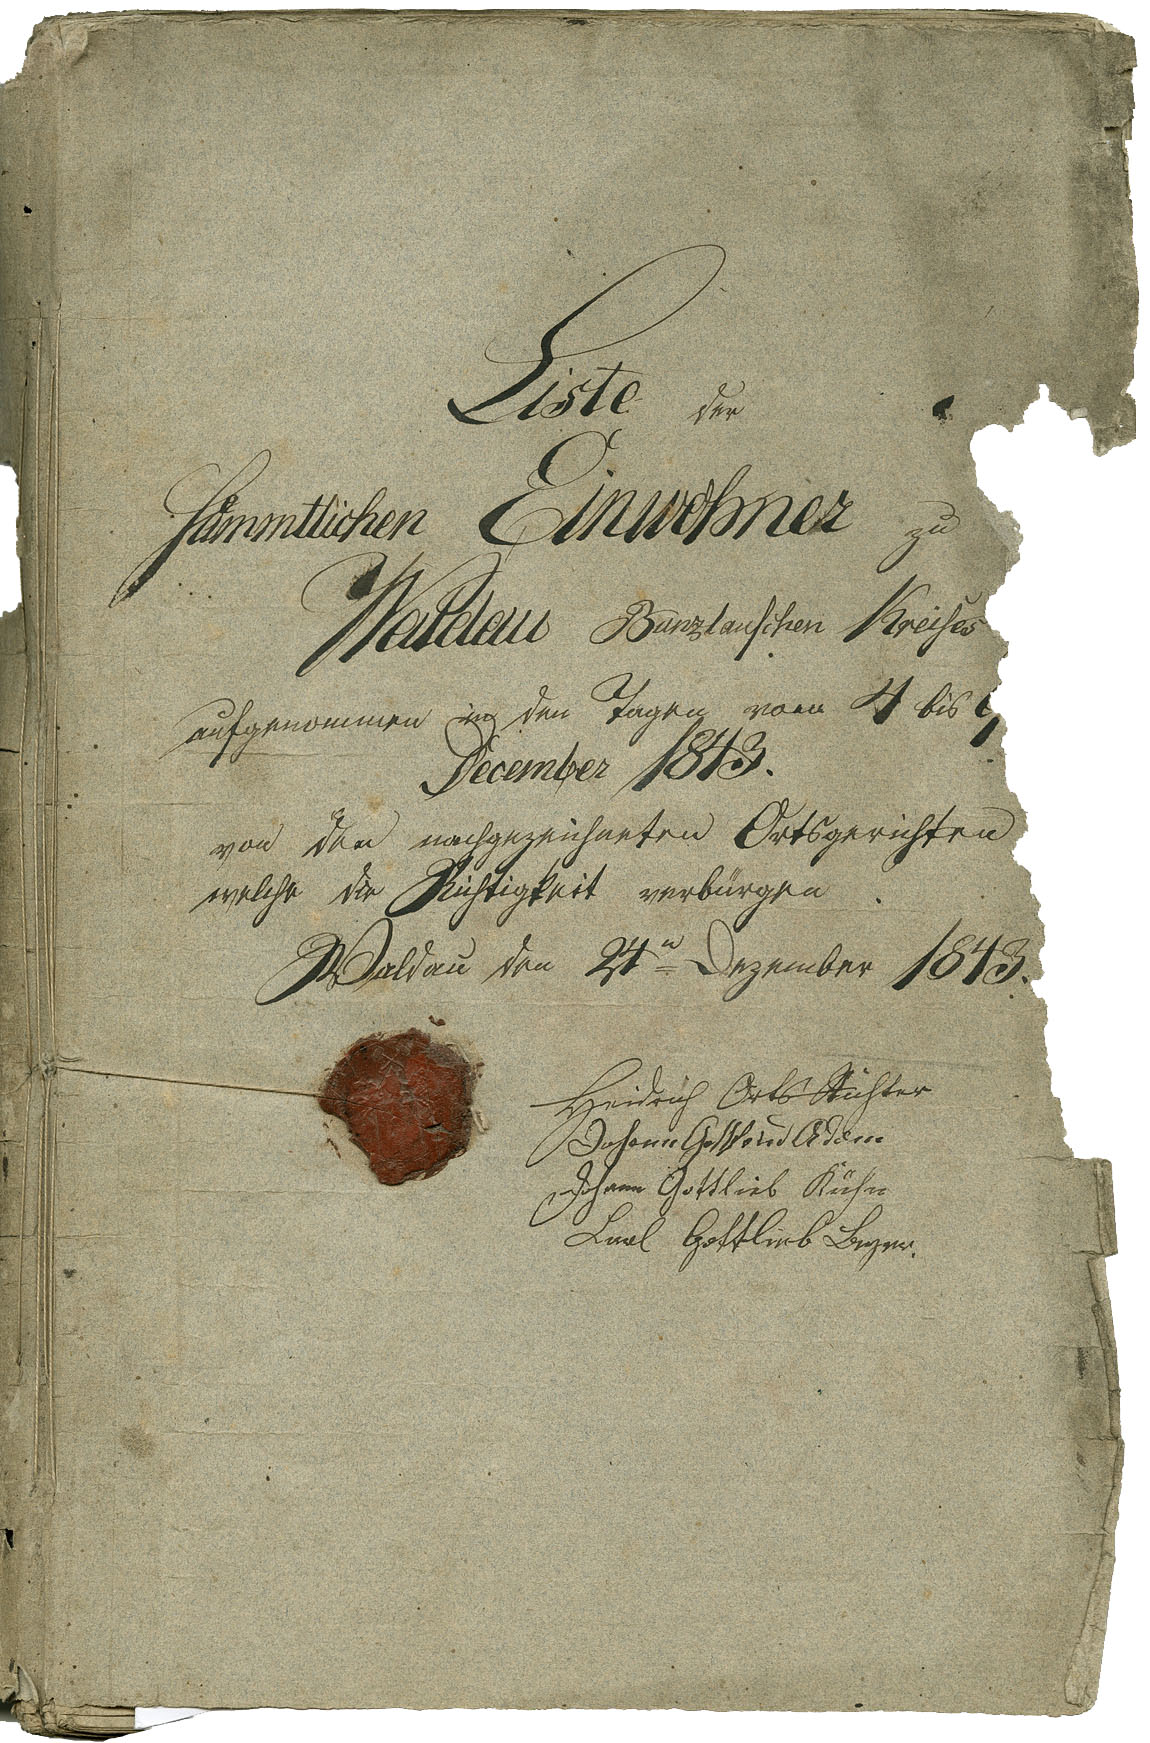 Liste der
sämmtlichen Einwohner zu
Waldau Bunzlauschen Kreises
aufgenommen in den Tagen vom 4 bis 9
December 1843.
von den nachgezeichneten Ortsgerichten
welche die Richtigkeit verbürgen.
Waldau den 24n Dezember 1843.
Heidrich Orts Richter
Johann Gottfried Adam
Johann Gottlieb Kühn
Carl Gottlieb Beyer.